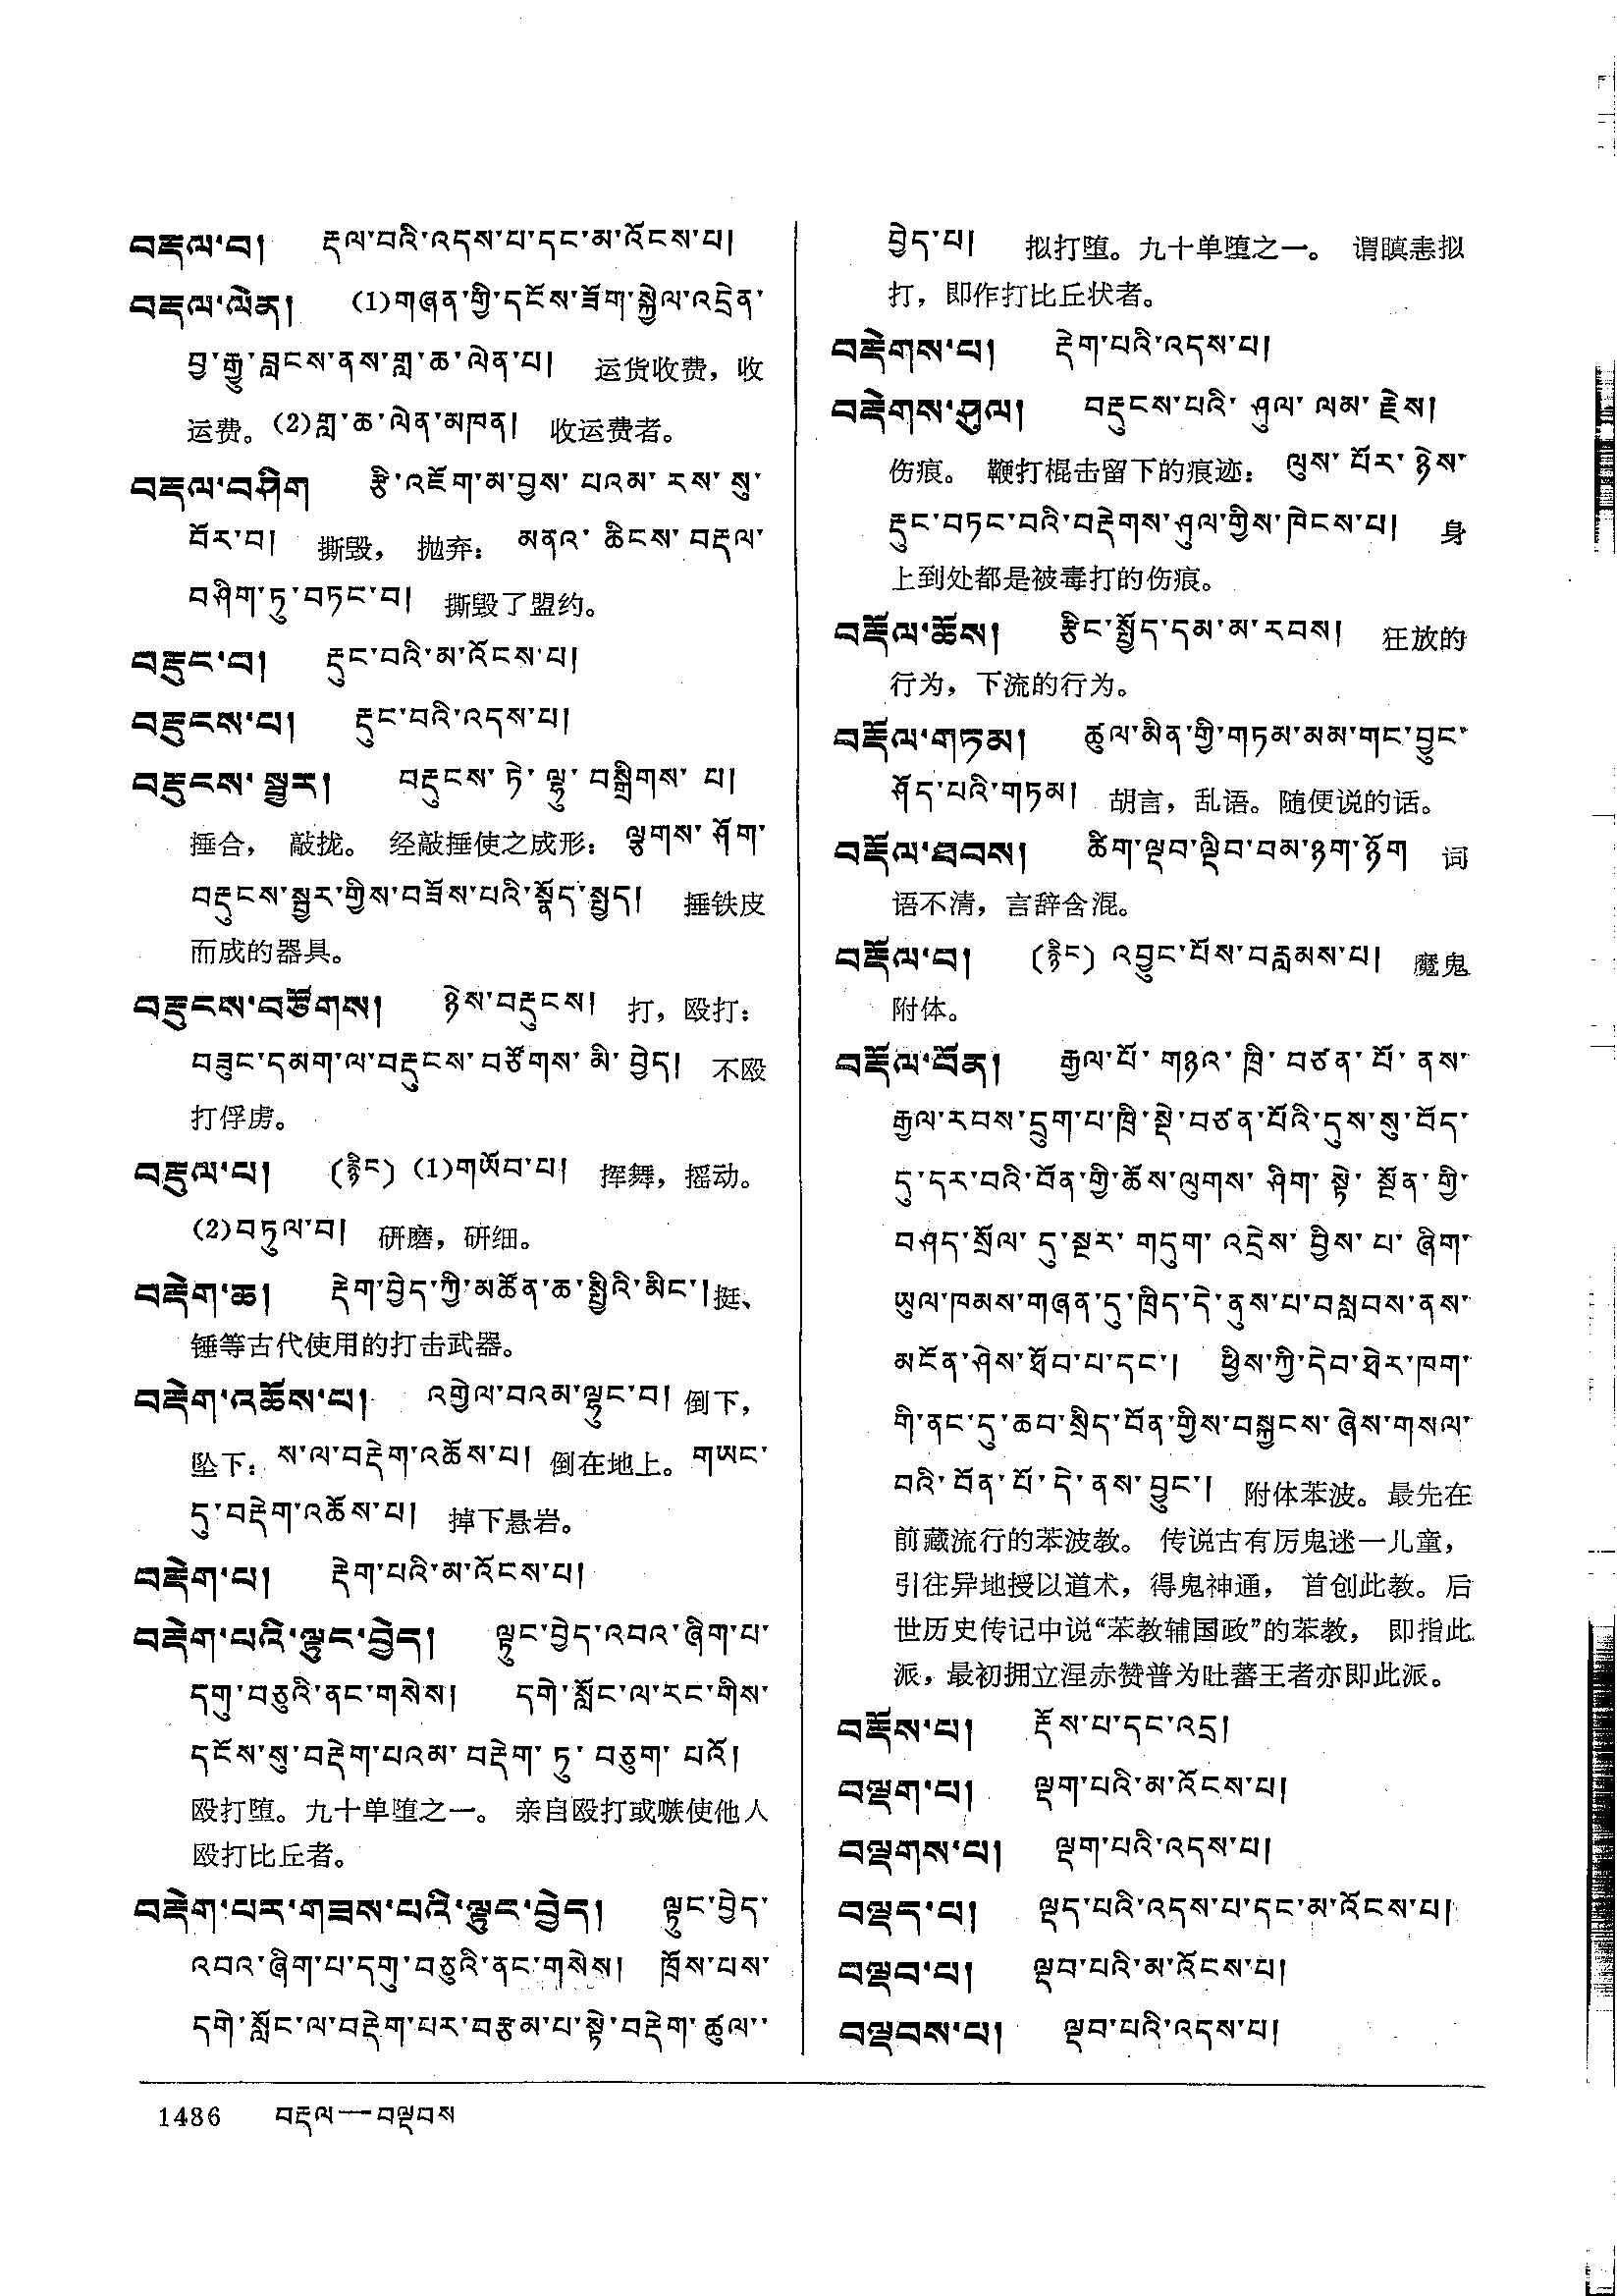 བརྡལ་བ། རྡལ་བའི་འདས་པ་དང་མ་འོངས་པ།
བརྡལ་ལེན། (1)གཞན་གྱི་དངོས་ཟོག་སྐྱེལ་འདྲེན་
བྱ་རྒྱུ་བླངས་ནས་གླ་ཆ་ལེན་པ། 运货收费，收
运费。(2)གླ་ཆ་ལེན་མཁན། 收运费者。
བརྡལ་བཤིག རྩི་འཇོག་མ་བྱས་པའམ་རས་སུ་
བོར་བ། 撕毁， 抛弃： མནའ་ཆིངས་བརྡལ་
བཤིག་ཏུ་བཏང་བ། 撕毁了盟约。
བརྡུང་བ། རྡུང་བའི་མ་འོངས་པ།
བརྡུངས་པ། རྡུང་བའི་འདས་པ།
བརྡུངས་སྦྱར། བརྡུངས་ཏེ་ལྷུ་བསྒྲིགས་པ།
捶合， 敲拢。 经敲捶使之成形： ལྕགས་ཤོག་
བརྡུངས་སྦྱར་གྱིས་བཟོས་པའི་སྣོད་སྤྱད། 捶铁皮
而成的器具。
བརྡུངས་བཙོགས། ཉེས་བརྡུངས། 打，殴打：
བཟུང་དམག་ལ་བརྡུངས་བཙོགས་མི་བྱེད། 不殴
打俘虏。
བརྡུལ་པ། (རྙིང) (1)གཡོབ་པ། 挥舞，摇动。
(2)བཏུལ་བ། 研磨，研细。
བརྡེག་ཆ། རྡེག་བྱེད་ཀྱི་མཚོན་ཆ་སྤྱིའི་མིང་། 挺、
锤等古代使用的打击武器。
བརྡེག་འཆོས་པ། འགྱེལ་བའམ་ལྷུང་བ། 倒下，
坠下： ས་ལ་བརྡེག་འཆོས་པ། 倒在地上。གཡང་
དུ་བརྡེག་འཆོས་པ། 掉下悬岩。
བརྡེག་པ། རྡེག་པའི་མ་འོངས་པ།
བརྡེག་པའི་ལྟུང་བྱེད། ལྟུང་བྱེད་འབའ་ཞིག་པ་
དགུ་བཅུའི་ནང་གསེས། དགེ་སློང་ལ་རང་གིས་
དངོས་སུ་བརྡེག་པའམ་བརྡེག་ཏུ་བཅུག་པའོ།
殴打堕。九十单堕之一。 亲自殴打或嗾使他人
殴打比丘者。
བརྡེག་པར་གཟས་པའི་ལྟུང་བྱེད། ལྟུང་བྱེད་
འབའ་ཞིག་པ་དགུ་བཅུའི་ནང་གསེས། ཁྲོས་པས་
དགེ་སློང་ལ་བརྡེག་པར་བརྩམ་པ་སྟེ་བརྡེག་ཚུལ་་
བྱེད་པ། 拟打堕。九十单堕之一。 谓瞋恚拟
打，即作打比丘状者。
བརྡེགས་པ། རྡེག་པའི་འདས་པ།
བརྡེགས་ཤུལ། བརྡུངས་པའི་ཤུལ་ལམ་རྗེས།
伤痕。 鞭打棍击留下的痕迹： ལུས་པོར་ཉེས་
རྡུང་བཏང་བའི་བརྡེགས་ཤུལ་གྱིས་ཁེངས་པ། 身
上到处都是被毒打的伤痕。
བརྡོལ་ཆོས། རྩིང་སྤྱོད་དམ་མ་རབས། 狂放的
行为，下流的行为。
བརྡོལ་གཏམ། ཚུལ་མིན་གྱི་གཏམ་མམ་གང་བྱུང་
ཤོད་པའི་གཏམ། 胡言，乱语。随便说的话。
བརྡོལ་ཐབས། ཚིག་ལྡབ་ལྡིབ་བམ་ཉག་ཉོག 词
语不清，言辞含混。
བརྡོལ་བ། (རྙིང) འབྱུང་པོས་བརླམས་པ། 魔鬼
附体。
བརྡོལ་བོན། རྒྱལ་པོ་གཉའ་ཁྲི་བཙན་པོ་ནས་
རྒྱལ་རབས་དྲུག་པ་ཁྲི་སྡེ་བཙན་པོའི་དུས་སུ་བོད་
དུ་དར་བའི་བོན་གྱི་ཆོས་ལུགས་ཤིག་སྟེ་སྔོན་གྱི་
བཤད་སྲོལ་དུ་སྔར་གདུག་འདྲེས་བྱིས་པ་ཞིག་
ཡུལ་ཁམས་གཞན་དུ་ཁྲིད་དེ་ནུས་པ་བསླབས་ནས་
མངོན་ཤེས་ཐོབ་པ་དང་། ཕྱིས་ཀྱི་དེབ་ཐེར་ཁག་
གི་ནང་དུ་ཆབ་སྲིད་བོན་གྱིས་བསྐྱངས་ཞེས་གསལ་
བའི་བོན་པོ་དེ་ནས་བྱུང་། 附体苯波。最先在
前藏流行的苯波教。 传说古有厉鬼迷一儿童，
引往异地授以道术，得鬼神通， 首创此教。后
世历史传记中说“苯教辅国政”的苯教， 即指此
派，最初拥立涅赤赞普为吐蕃王者亦即此派。
བརྡོས་པ། རྡོས་པ་དང་འདྲ།
བལྡག་པ། ལྡག་པའི་མ་འོངས་པ།
བལྡགས་པ། ལྡག་པའི་འདས་པ།
བལྡད་པ། ལྡད་པའི་འདས་པ་དང་མ་འོངས་པ།
བལྡབ་པ། ལྡབ་པའི་མ་འོངས་པ།
བལྡབས་པ། ལྡབ་པའི་འདས་པ།
1486 བརྡལ—བལྡབས